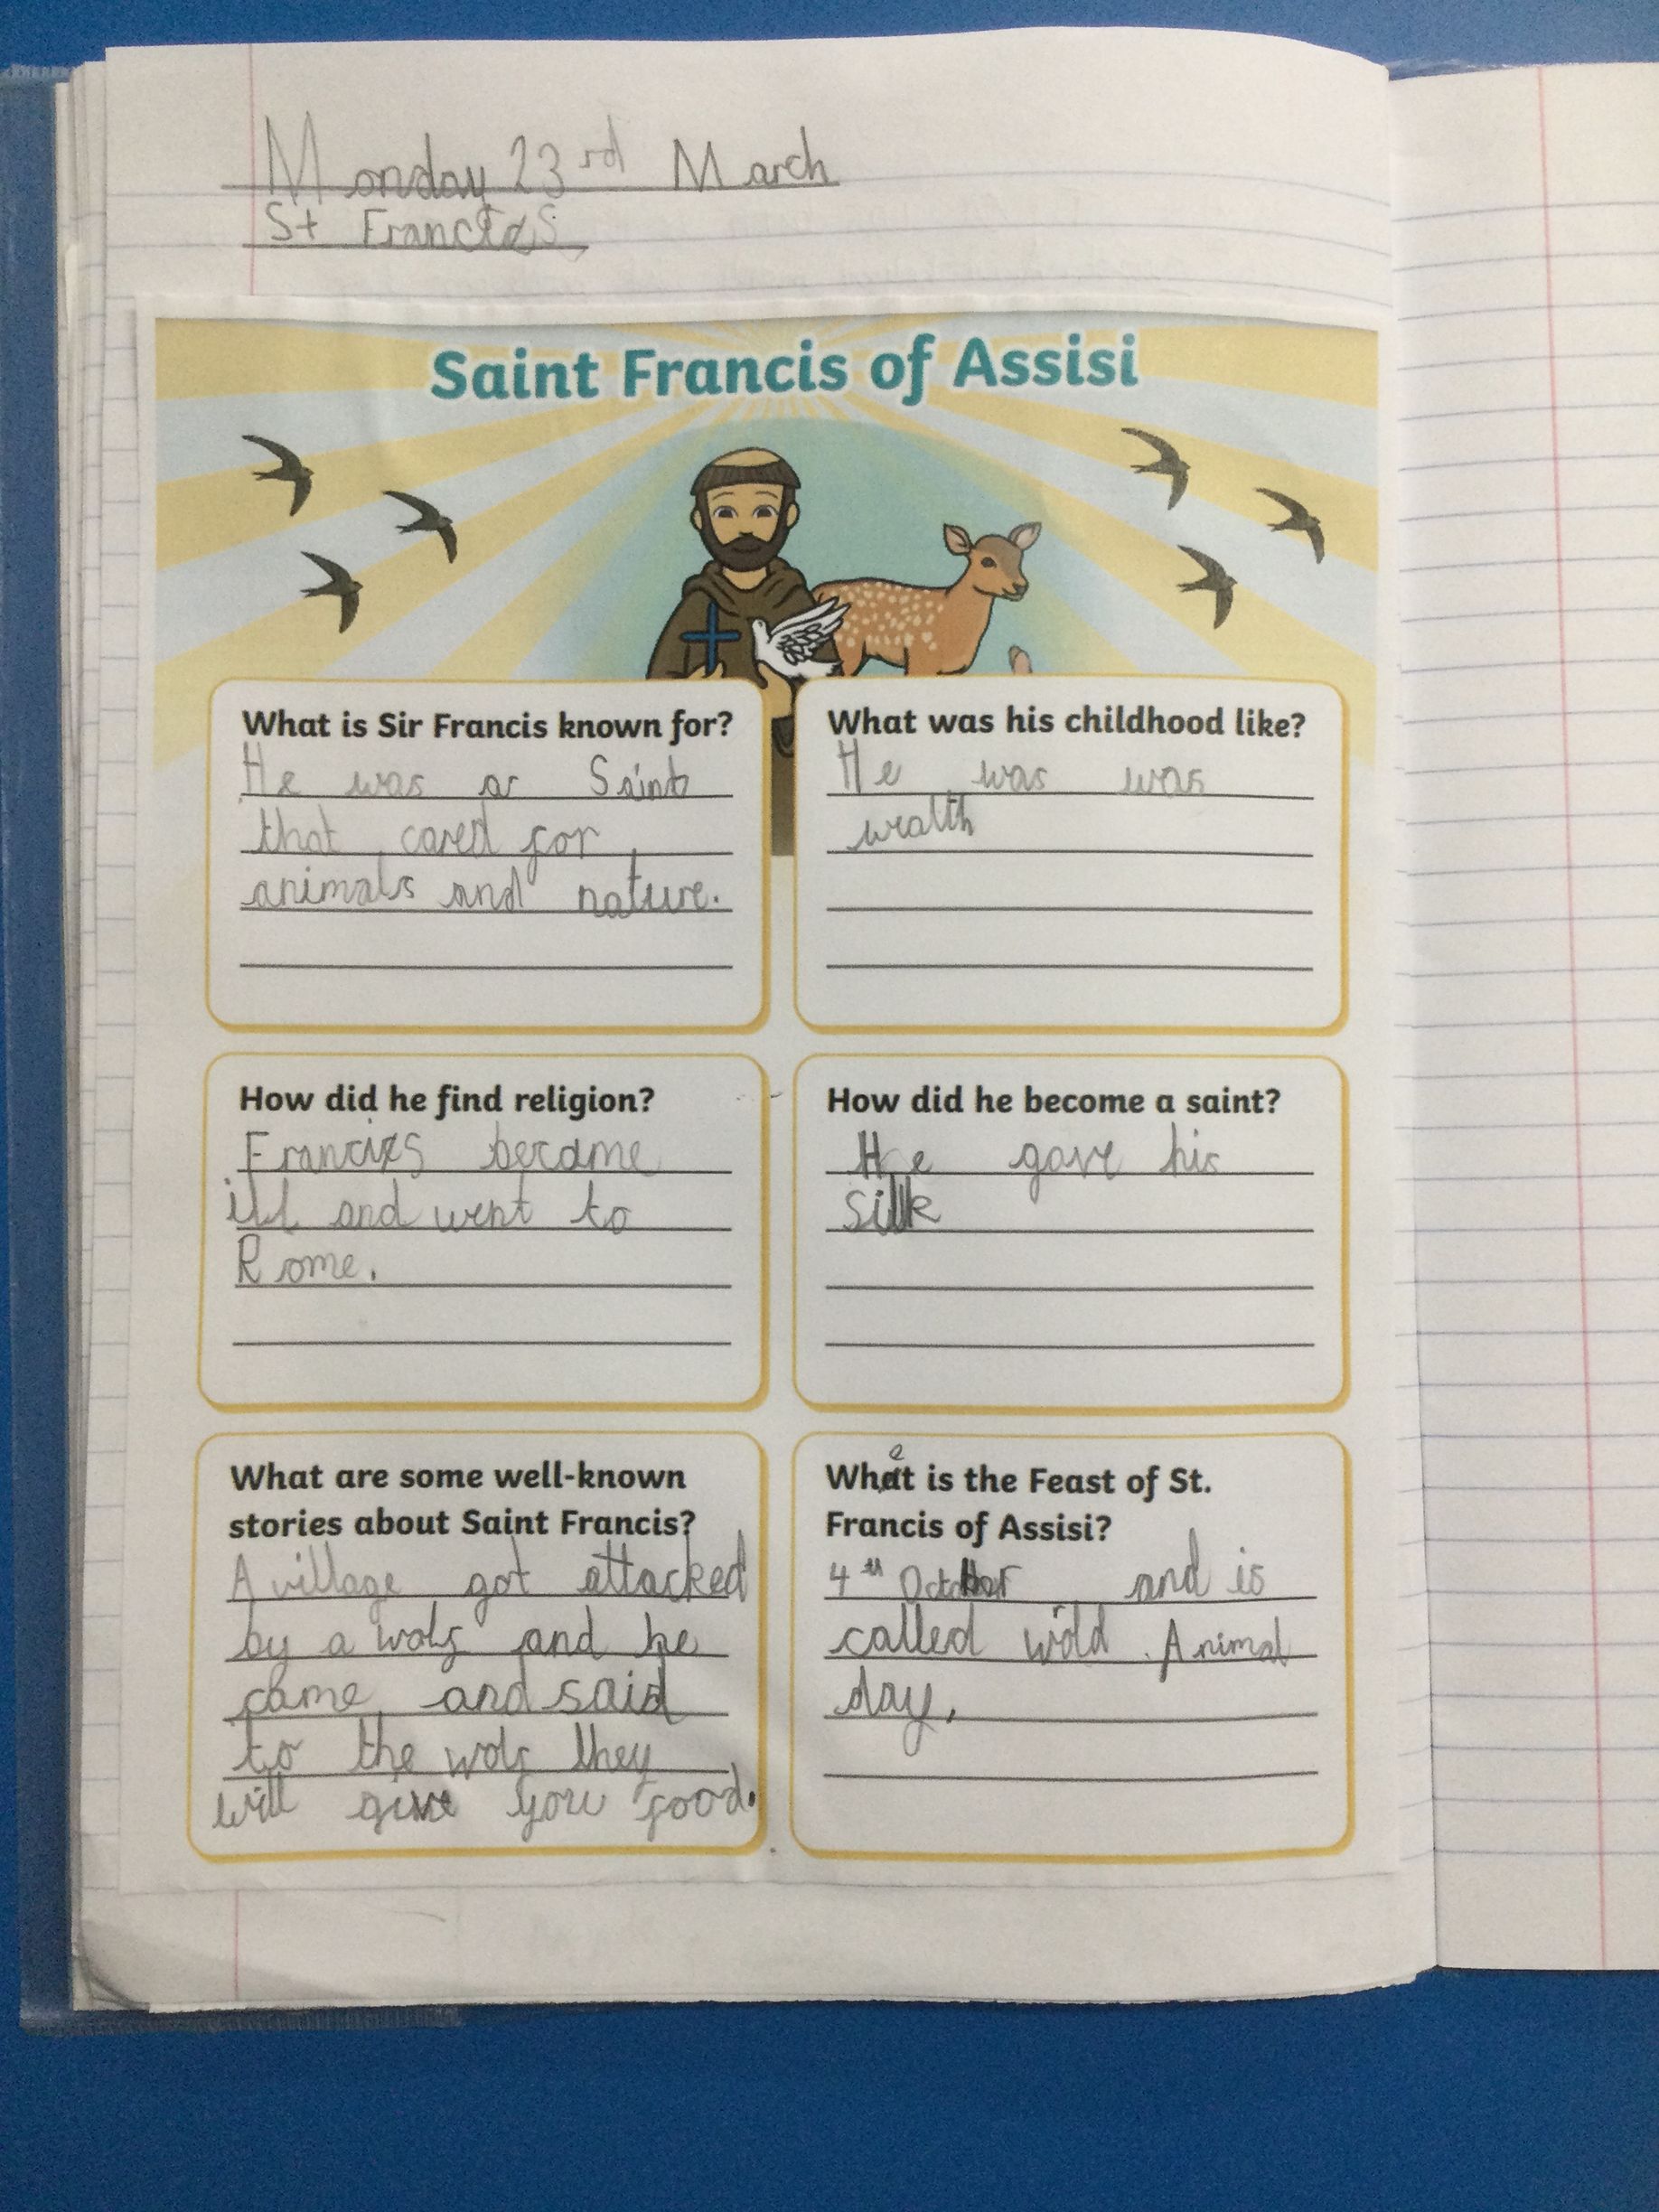 Monday 23rd March
St Francis
Saint Francis of Assisi
What is Sir Francis known for?
He was a Saint
that cared for
animals and nature.
What was his childhood like?
He was was
wralth
How did he find religion?
Francis became
ill and went to
Rome.
How did he become a saint?
He gave his
silk
What are some well-known
stories about Saint Francis?
A village got attacked
by a wolf and he
came and said
to the wolf they
will give you food.
When is the Feast of St.
Francis of Assisi?
4th October and is
called wold Animal
day.